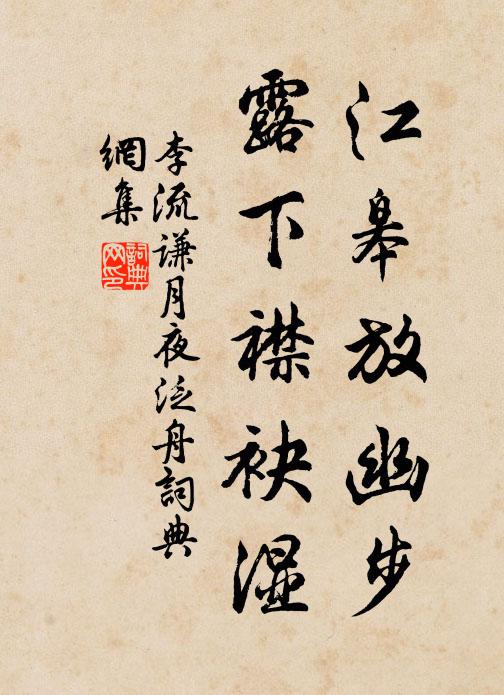 江皋放幽步
露下襟袂湿
李流謙月夜泛舟詞典
網集
詞典
网印